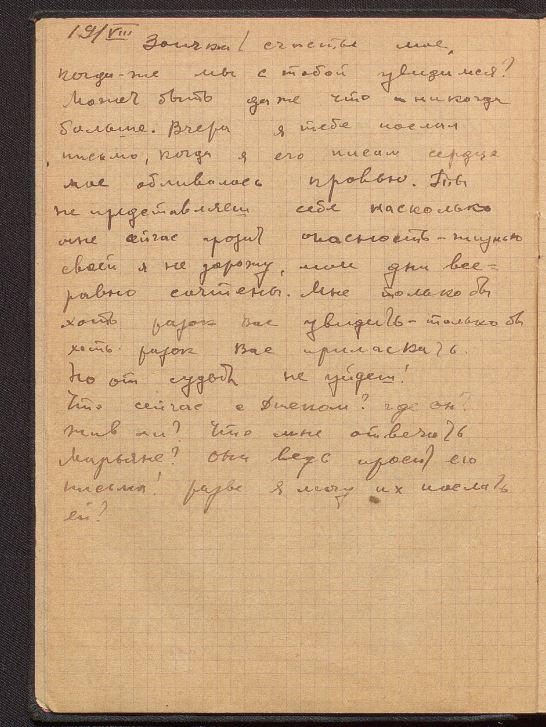 19/VIII
Зоичка! счастье мое,
когда-же мы с тобой увидимся?
Может быть даже что никогда
больше. Вчера я тебе послал
письмо, когда я его писал сердце
мое обливалось кровью. Ты
не представляеш себе насколько
мне сейчас грозит опасность - жизнью
своей я не дорожу, мои дни все=
равно сочтены. Мне только бы
хоть разок вас увидить - только бы
хоть разок вас приласкать.
Но от судьбы не уйдеш!
Что сейчас с ? где он?
жив ли? Что мне отвечать
Марьяне? Она ведь просит его
письма! разве я могу их послать
ей?